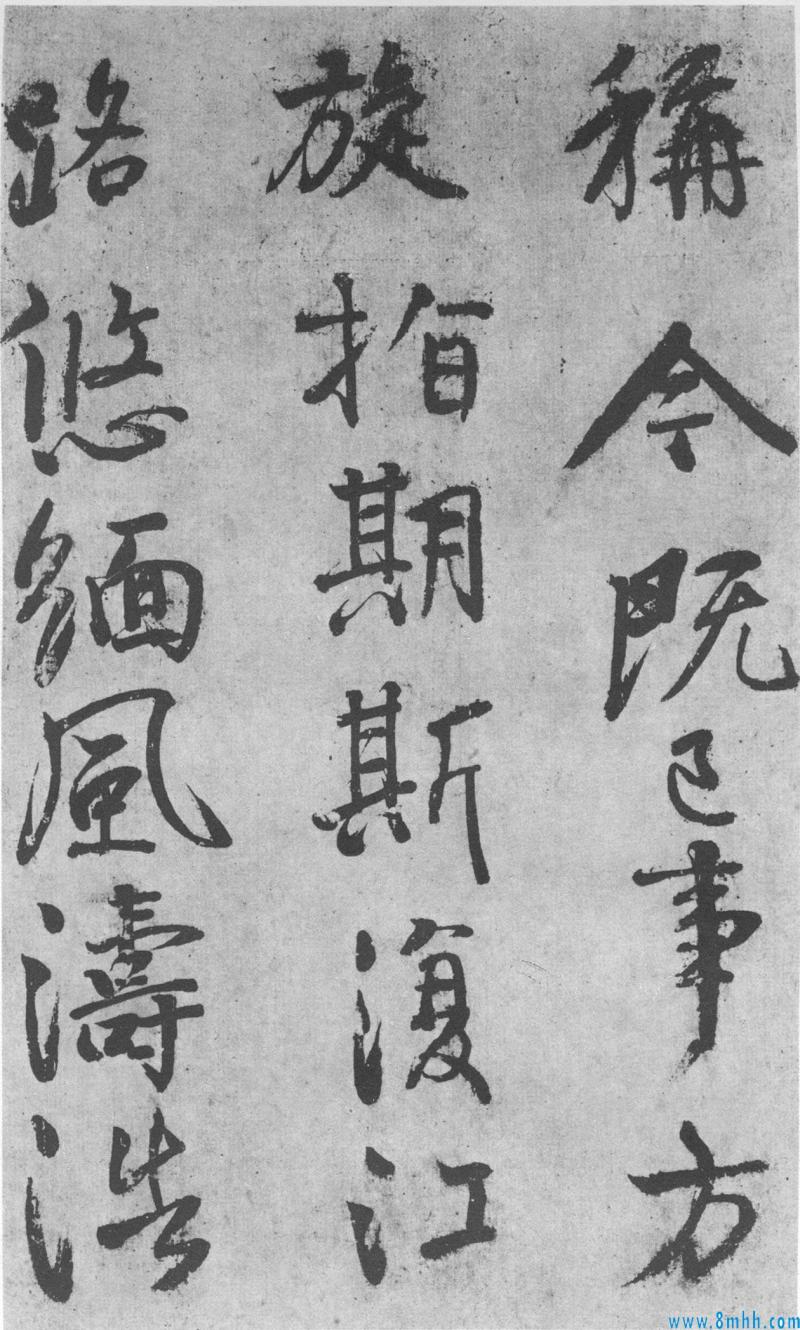 稱今既已事方
旋指期斯復江
路悠緬風濤浩
www.8mhh.com